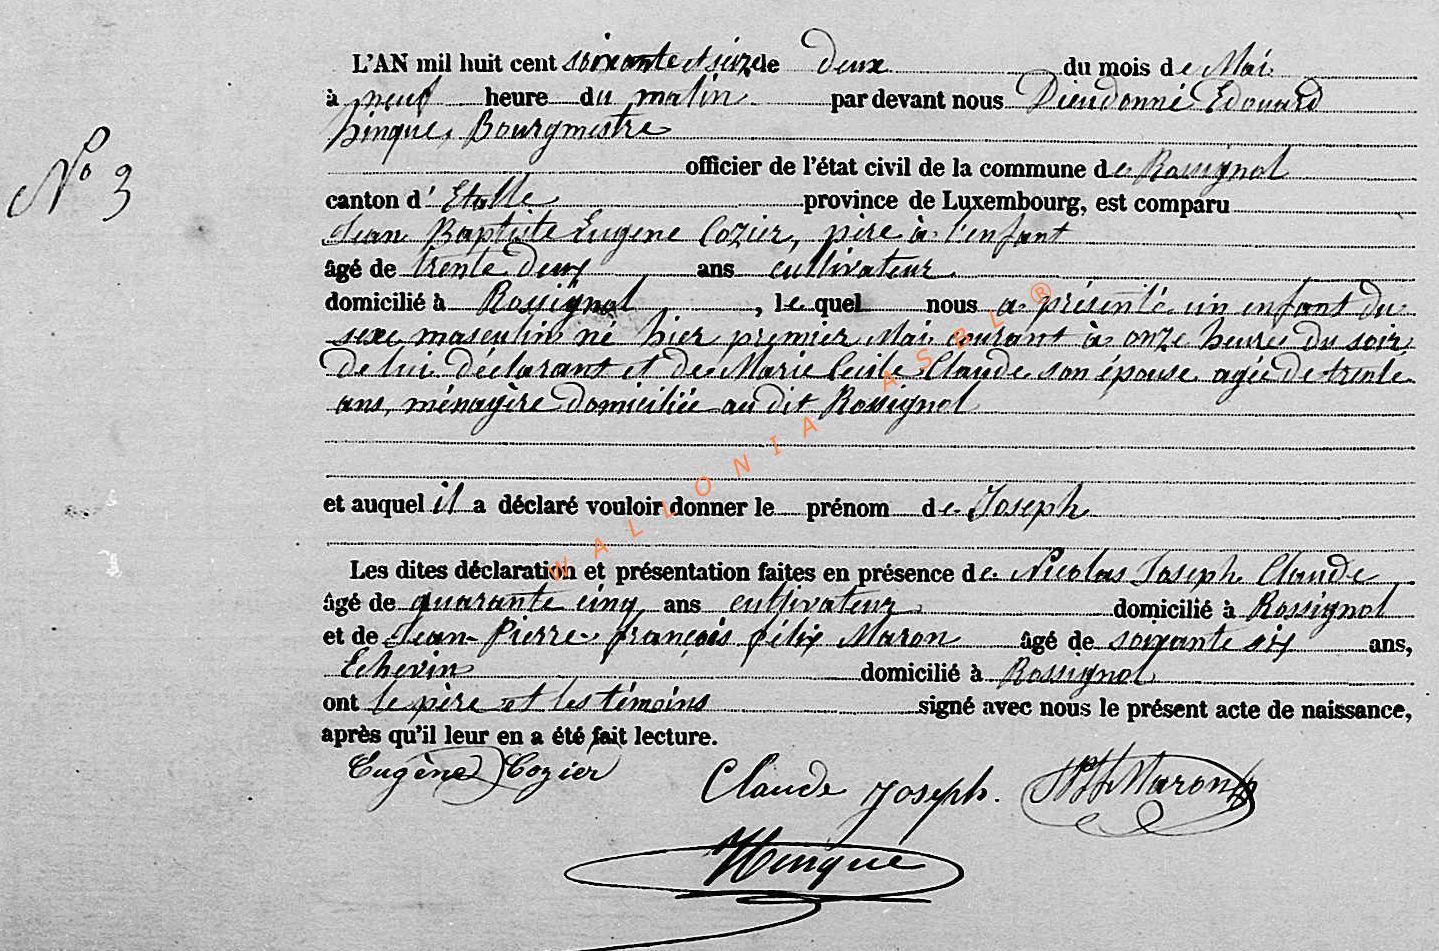 L'AN mil huit cent soixante et seize de deux du mois de Mai
à neuf heure du matin par devant nous Dieudonné Edouard
hinque, Bourgmestre
officier de l'état civil de la commune de Rossignol
N° 3
canton d'Etalle province de Luxembourg, est comparu
Jean Baptiste Eugène Cozier, père à l'enfant
âgé de trente deux ans cultivateur
domicilié à Rossignol, le quel nous a présenté un enfant du
sexe masculin né hier premier Mai courant à onze heures du soir
de lui déclarant et de Marie Cecile Claude son épouse agée de trente
ans, ménagère domiciliée au dit Rossignol
et auquel il a déclaré vouloir donner le prénom de Joseph
Les dites déclaration et présentation faites en présence de Nicolas Joseph Claude
âgé de quarante cinq ans cultivateur domicilié à Rossignol
et de Jean Pierre françois félix Maron âgé de soixante six ans,
Echevin domicilié à Rossignol
ont le père et les témoins signé avec nous le présent acte de naissance,
après qu'il leur en a été fait lecture.
Eugène Cozier Claude Joseph. Maron
Hinque
WALLONIA ASBL ®